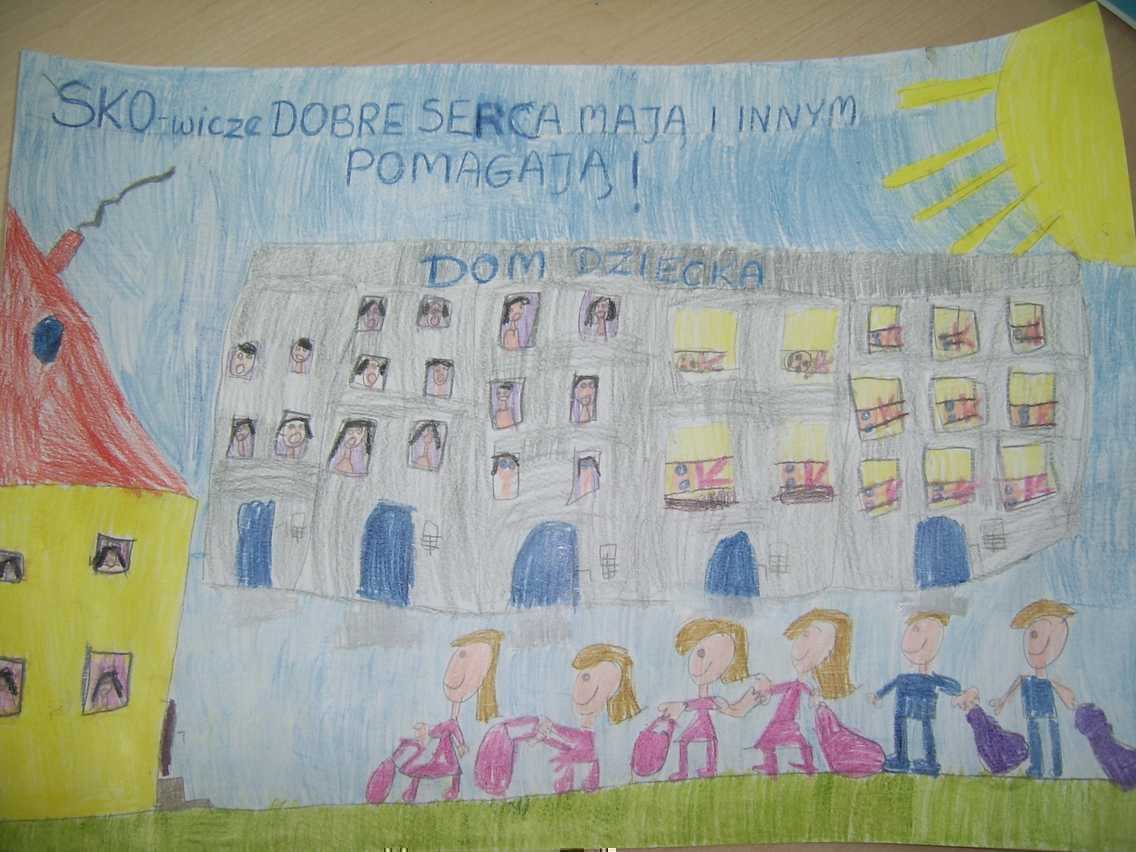 SKO-wicze DOBRE SERCA MAJĄ I INNYM
POMAGAJĄ!
DOM DZIECKA